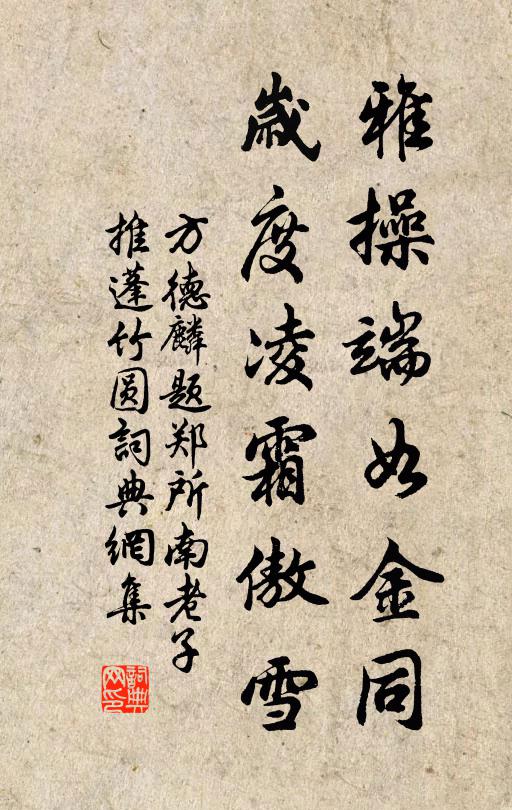 雅操端如金同
歲度凌霜傲雪
方德麟题郑所南老子
推蓬竹圆詞典網集
詞典
网印